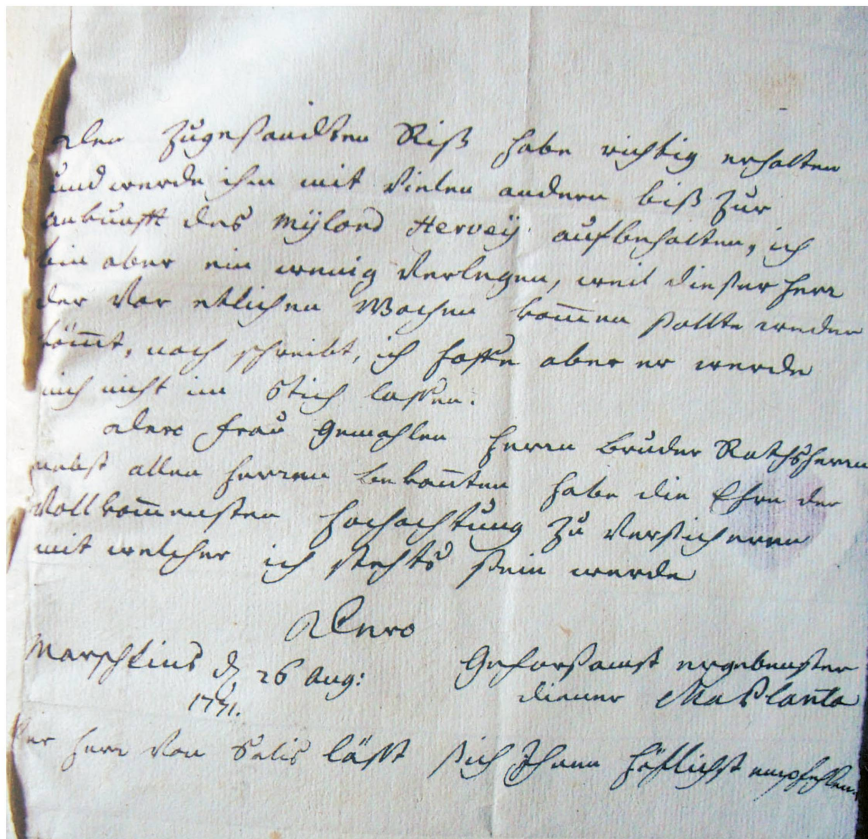 Den zugesandten Riß habe richtig erhalten
und werde ihn mit vielen andern biß zur
ankunfft des Mylord Hervey aufbehalten, ich
bin aber ein wenig verlegen, weil dießer herr
der vor etlichen Wochen kommen sollte weder
kömmt, noch schreibt, ich hoffe aber er werde
mich nicht im Stich laßen.
Dero Frau Gemahlen Herrn Bruder Rathsherrn
nebst allen Herren bekannten habe die Ehre der
Vollkommensten hochachtung zu versicheren
mit welcher ich stehts sein werde
Dero
Marschlins d 26 Aug: Gehorsamst ergebenster
1771. diener MaPlanta
Der Herr von Salis läßt sich Ihnen höflichst empfehlen